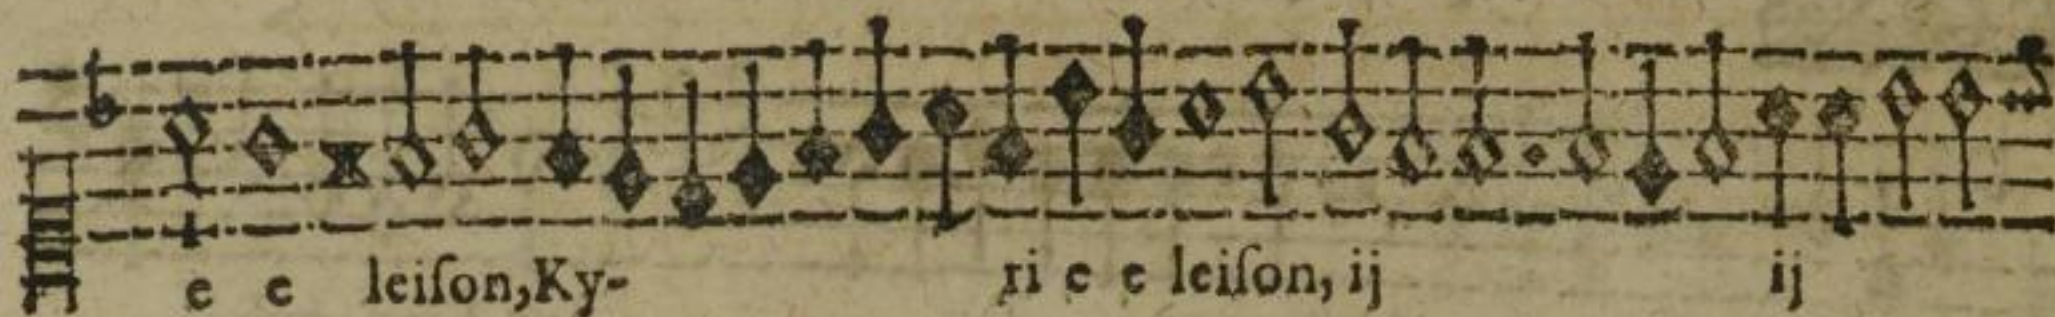 e e leiſon, Ky- ri e e leiſon, ij ij